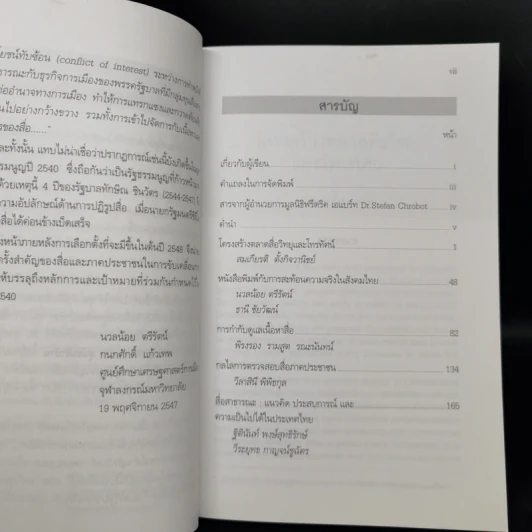 โยชน์ทับซ้อน (conflict of interest) ระหว่างการดำเนิน
ธารณะกับธุรกิจการเมืองของพรรครัฐบาลที่มีกลุ่มทุนสื่อ
ต่ออำนาจทางการเมือง ทำให้การแทรกแซงและการ
นไปอย่างกว้างขวาง รวมทั้งการเข้าไปจัดการกับเนื้อหา
รของสื่อ......"
ละทั้งนั้น แทบไม่น่าเชื่อว่าปรากฏการณ์เช่นนี้บังเกิดขึ้น
ธรรมนูญปี 2540 ซึ่งถือกันว่าเป็นรัฐธรรมนูญที่ก้าวหน้า
ด้วยเหตุนี้ 4 ปีของรัฐบาลทักษิณ ชินวัตร (2544-2547)
ความอัปลักษณ์ด้านการปฏิรูปสื่อ เมื่อนายกรัฐมนตรี
สื่อได้ค่อนข้างเบ็ดเสร็จ
งหน้าภายหลังการเลือกตั้งที่จะมีขึ้นในต้นปี 2548 จึง
รั้งสำคัญของสื่อและภาคประชาชนในการขับเคลื่อน
ห้บรรลุถึงหลักการและเป้าหมายที่ร่วมกันกำหนดไว้ใน
2540
นวลน้อย ตรีรัตน์
กนกศักดิ์ แก้วเทพ
ศูนย์ศึกษาเศรษฐศาสตร์การเมือง
จุฬาลงกรณ์มหาวิทยาลัย
19 พฤศจิกายน 2547
vii
สารบัญ
หน้า
เกี่ยวกับผู้เขียน i
คำแถลงในการจัดพิมพ์ iii
สารจากผู้อำนวยการมูลนิธิฟรีดริค เอแบร์ท Dr.Stefan Chrobot iv
คำนำ v
โครงสร้างตลาดสื่อวิทยุและโทรทัศน์ 1
สมเกียรติ ตั้งกิจวานิชย์
หนังสือพิมพ์กับการสะท้อนความจริงในสังคมไทย 48
นวลน้อย ตรีรัตน์
ธานี ชัยวัฒน์
การกำกับดูแลเนื้อหาสื่อ 82
พิรงรอง รามสูต รณะนันทน์
กลไกการตรวจสอบสื่อภาคประชาชน 134
วิลาสินี พิพิธกุล
สื่อสาธารณะ : แนวคิด ประสบการณ์ และ 165
ความเป็นไปได้ในประเทศไทย
ฐิตินันท์ พงษ์สุทธิรักษ์
วีระยุทธ กาญจน์ชูฉัตร